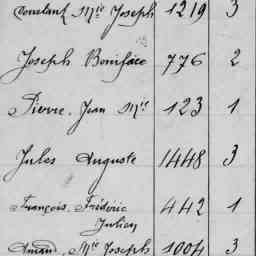 Constant Mie Joseph 1219 3
Joseph Boniface 776 2
Pierre Jean Mie 123 1
Jules Auguste 1448 3
François Frédéric 442 1
Julien
Amand Mie Joseph 1004 3